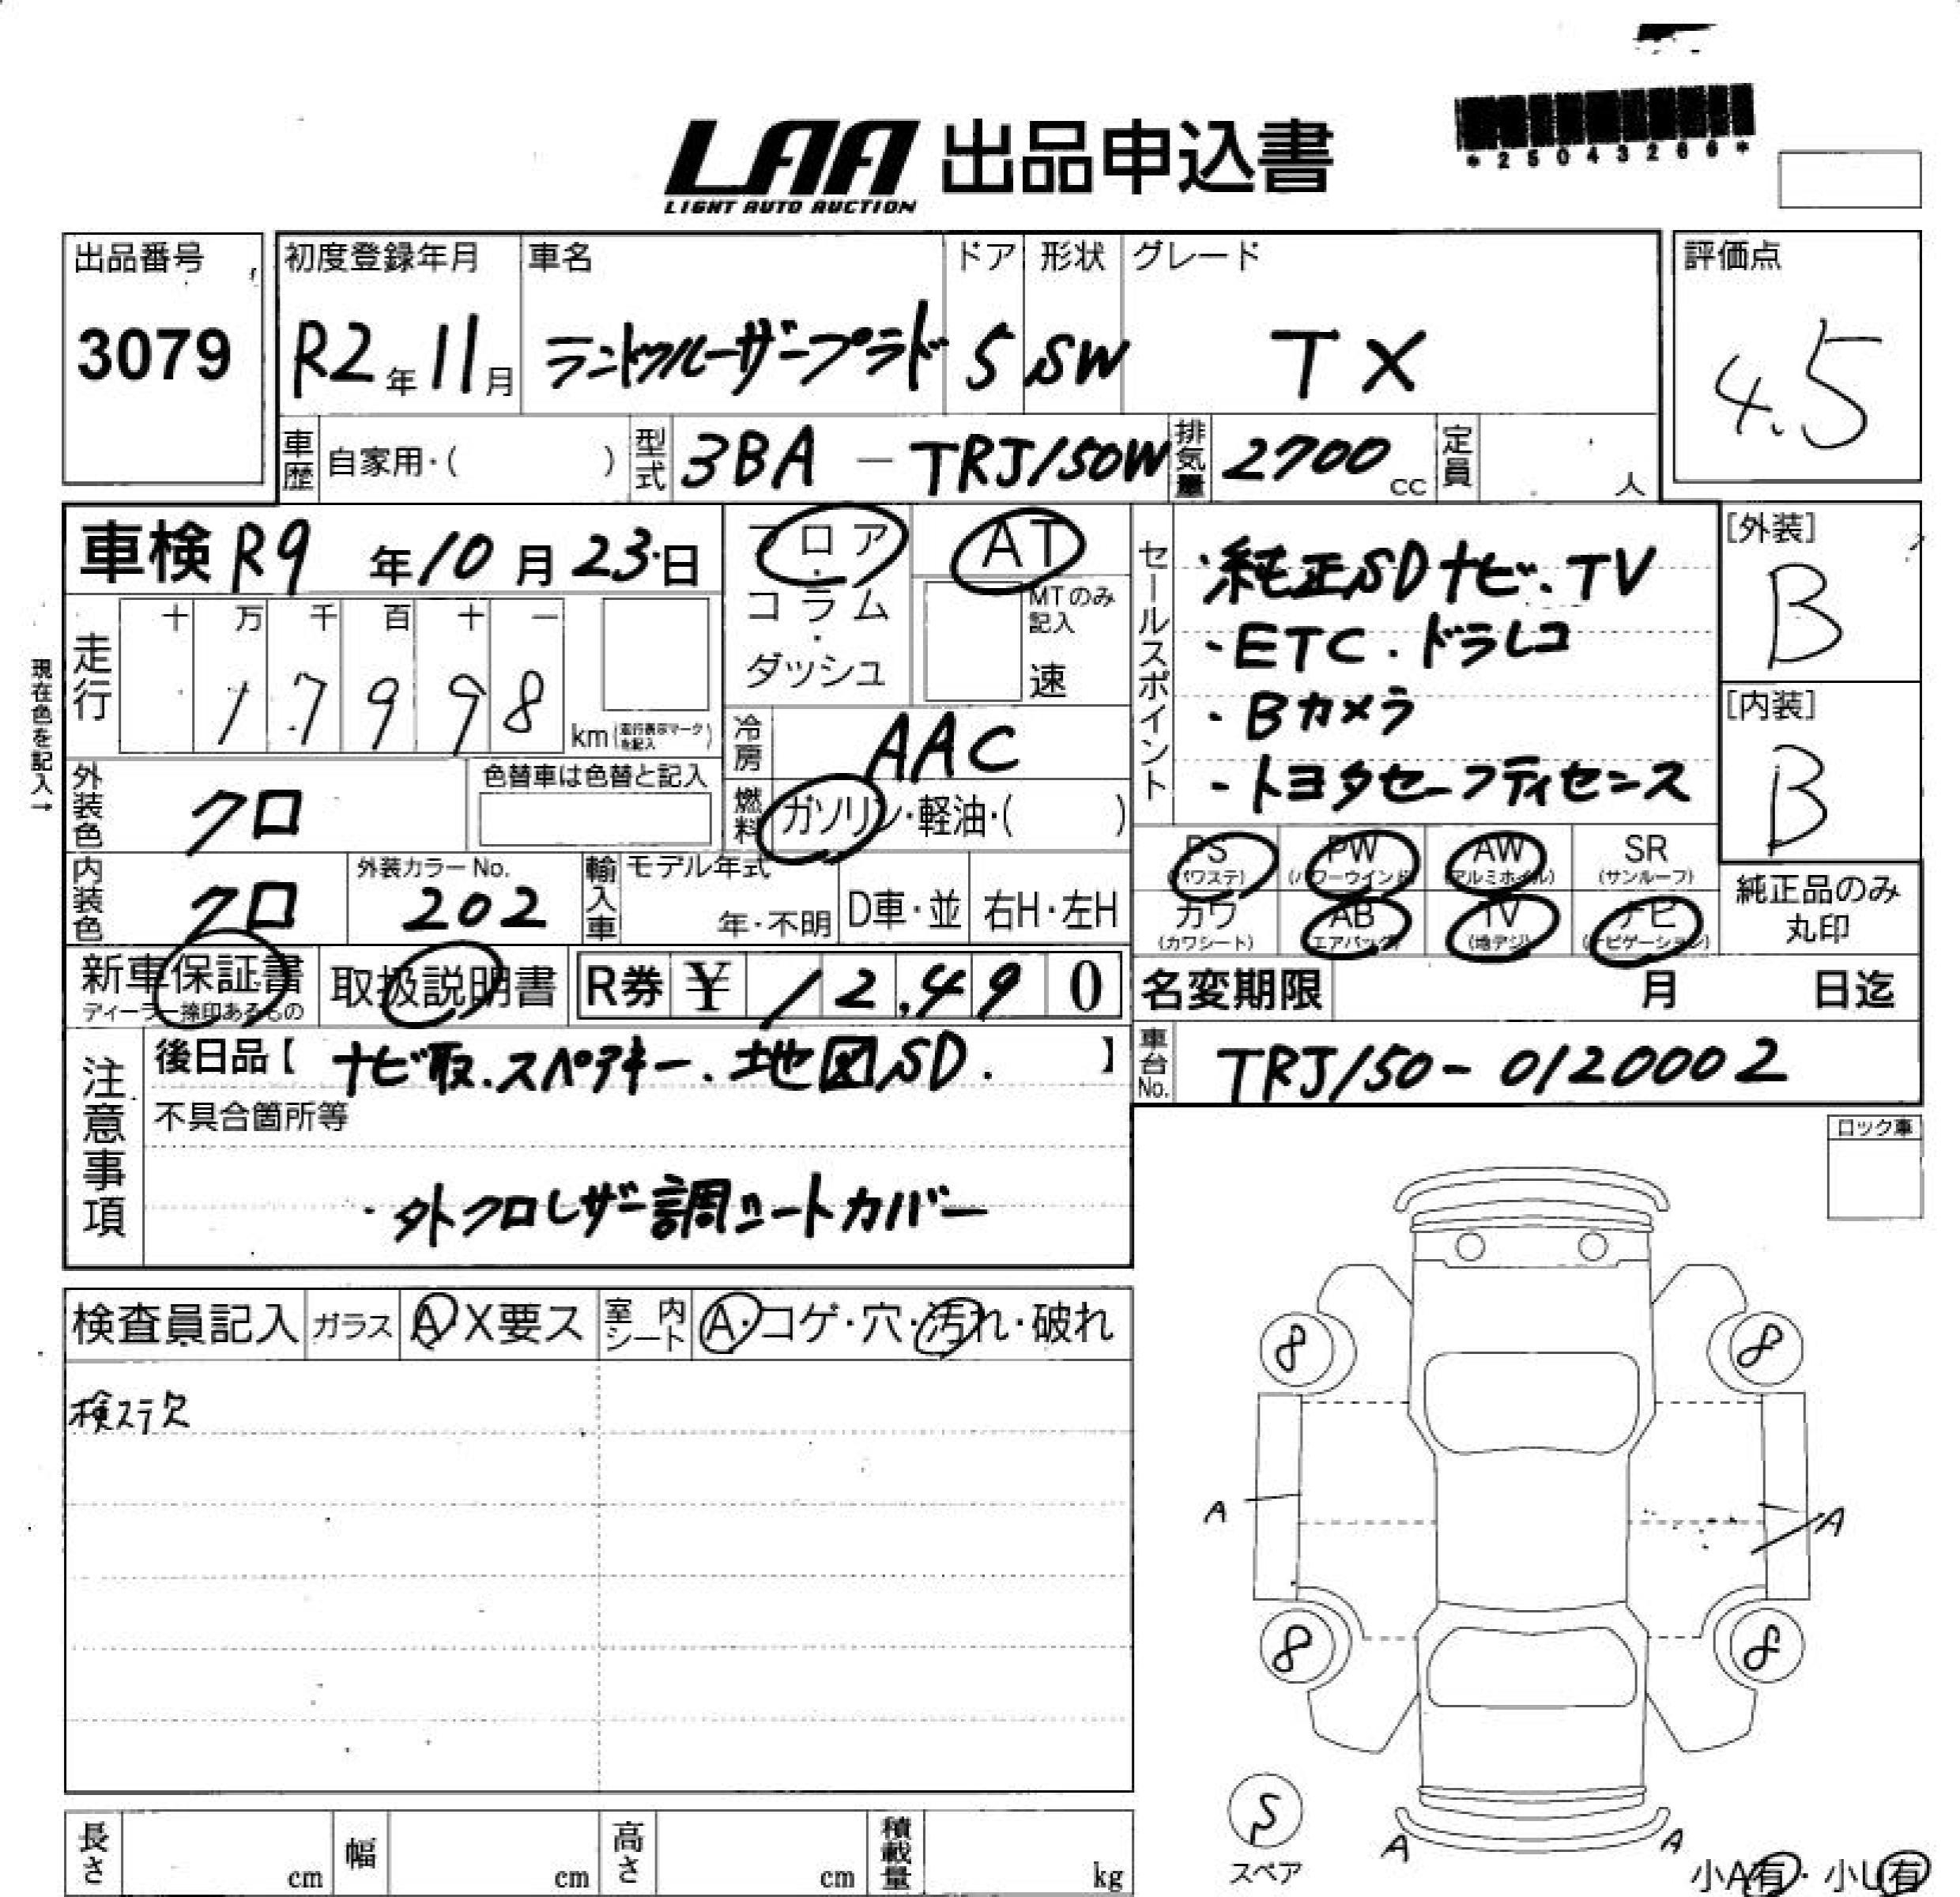 LAA 出品申込書
LIGHT AUTO AUCTION
*25043266*
出品番号
3079
初度登録年月
R2年11月
車名
ランドクルーザープラド
ドア
5
形状
SW
グレード
TX
評価点
4.5
車歴 自家用・( )
型式 3BA - TRJ150W
排気量 2700 cc
定員 人
車検 R9年10月23日
現在色を記入→
走行
十 万 千 百 十 一
1 7 9 9 8
km (走行表示マークを記入)
フロア
・
コラム
・
ダッシュ
AT
MTのみ記入
速
冷房 AAC
燃料 ガソリン・軽油・( )
セールスポイント
・純正SDナビ・TV
・ETC・ドラレコ
・Bカメラ
・トヨタセーフティセンス
[外装]
B
[内装]
B
外装色 クロ
色替車は色替と記入
内装色 クロ
外装カラーNo.
202
輸入車
モデル年式
年・不明
D車・並
右H・左H
PS
(パワステ)
PW
(パワーウインド)
AW
(アルミホイル)
SR
(サンルーフ)
カワ
(カワシート)
AB
(エアバッグ)
TV
(地デジ)
ナビ
(ナビゲーション)
純正品のみ
丸印
新車保証書
ディーラー捺印あるもの
取扱説明書
R券 ¥ 12,490
名変期限 月 日迄
注意事項
後日品【 ナビ取.スペアキー.地図SD. 】
不具合箇所等
・外クロレザー調シートカバー
車台No. TRJ150-0120002
ロック車
検査員記入
ガラス A X要ス
室内シート A・コゲ・穴・汚れ・破れ
検ステ欠
8
8
A
A
8
8
S
スペア
A
A
小A有・小U有
長さ cm
幅 cm
高さ cm
積載量 kg